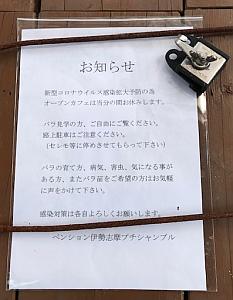 お知らせ
新型コロナウイルス感染拡大予防の為
オープンカフェは当分の間お休みします。
バラ見学の方、ご自由にご覧ください。
路上駐車はご注意ください。
(セレモ等に停めさせてもらって下さい)
バラの育て方、病気、害虫、気になる事が
ある方、またバラ苗をご希望の方はお気軽
に声をかけて下さい。
感染対策は各自よろしくお願いします。
ペンション伊勢志摩プチシャンブル